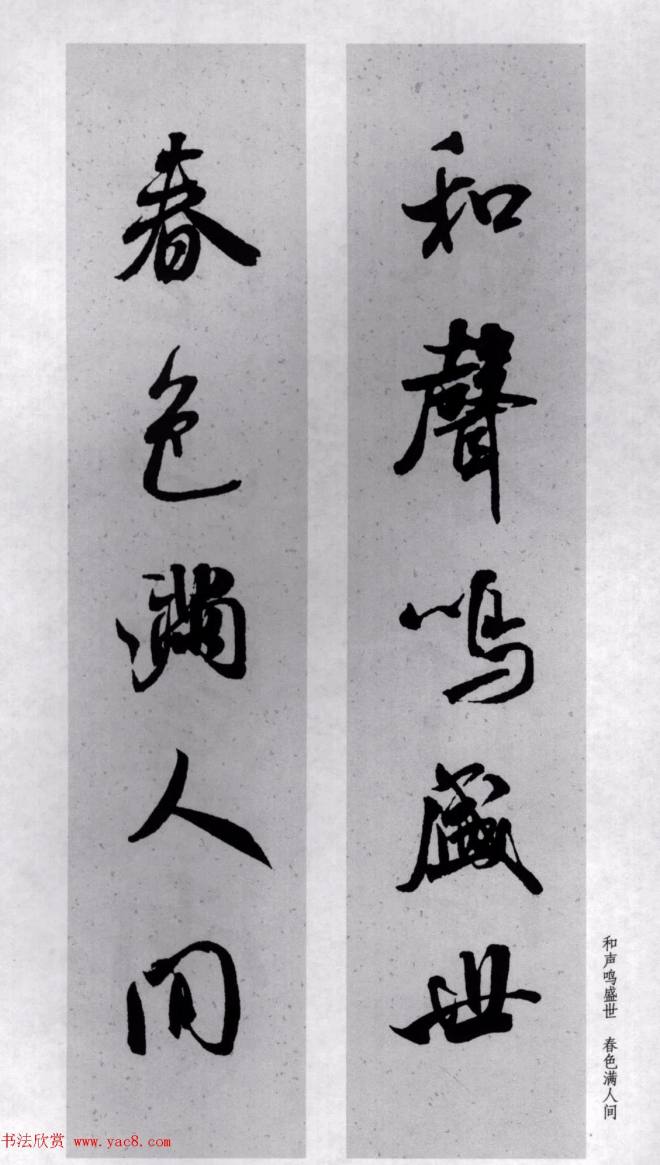 和聲鳴盛世
春色滿人間
和声鸣盛世 春色满人间
书法欣赏 www.yac8.com